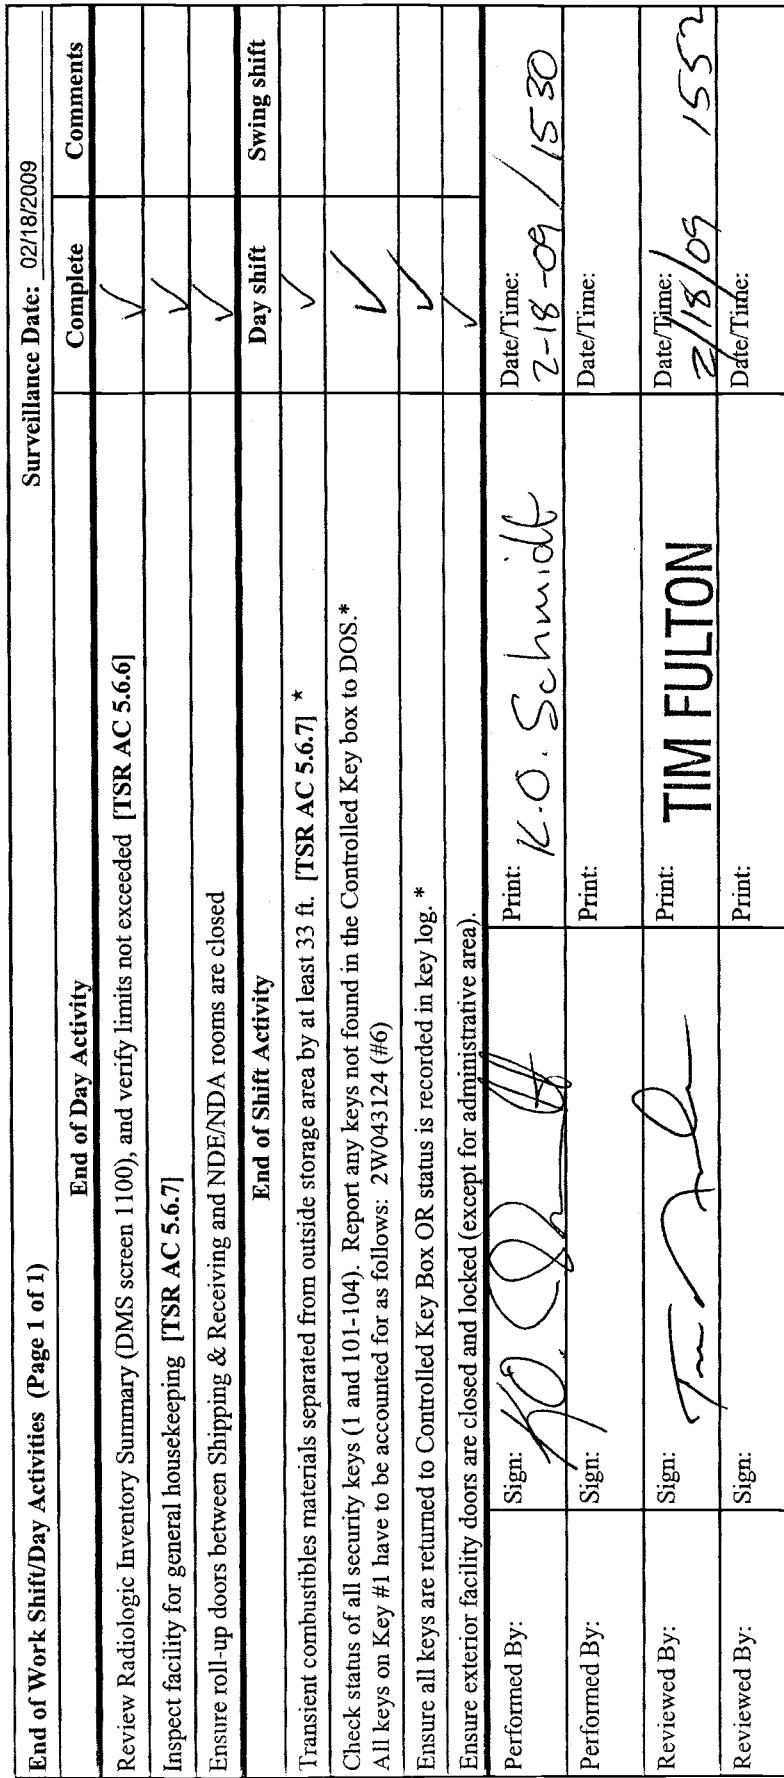 End of Work Shift/Day Activities (Page 1 of 1) Surveillance Date: 02/18/2009
End of Day Activity Complete Comments
Review Radiologic Inventory Summary (DMS screen 1100), and verify limits not exceeded [TSR AC 5.6.6] ✓
Inspect facility for general housekeeping [TSR AC 5.6.7] ✓
Ensure roll-up doors between Shipping & Receiving and NDE/NDA rooms are closed ✓
End of Shift Activity Day shift Swing shift
Transient combustibles materials separated from outside storage area by at least 33 ft. [TSR AC 5.6.7] * ✓
Check status of all security keys (1 and 101-104). Report any keys not found in the Controlled Key box to DOS.* ✓
All keys on Key #1 have to be accounted for as follows: 2W043124 (#6)
Ensure all keys are returned to Controlled Key Box OR status is recorded in key log. * ✓
Ensure exterior facility doors are closed and locked (except for administrative area). ✓
Performed By: Sign: Print: K.O. Schmidt Date/Time: 2-18-09 / 1530
Performed By: Sign: Print: Date/Time:
Reviewed By: Sign: Print: TIM FULTON Date/Time: 2/18/09 1552
Reviewed By: Sign: Print: Date/Time: